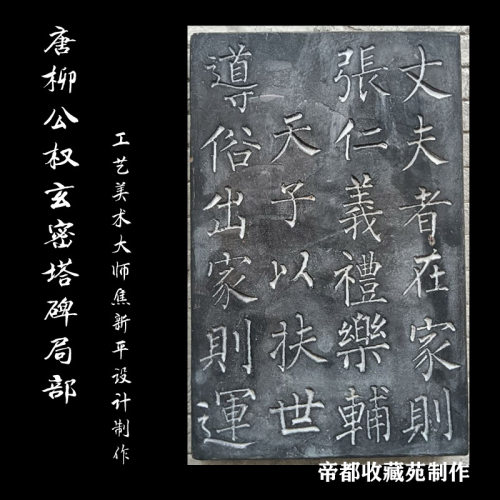 唐柳公权玄密塔碑局部
工艺美术大师焦新平设计制作
丈夫者在家則
張仁義禮樂輔
天子以扶世
導俗出家則運
帝都收藏苑制作